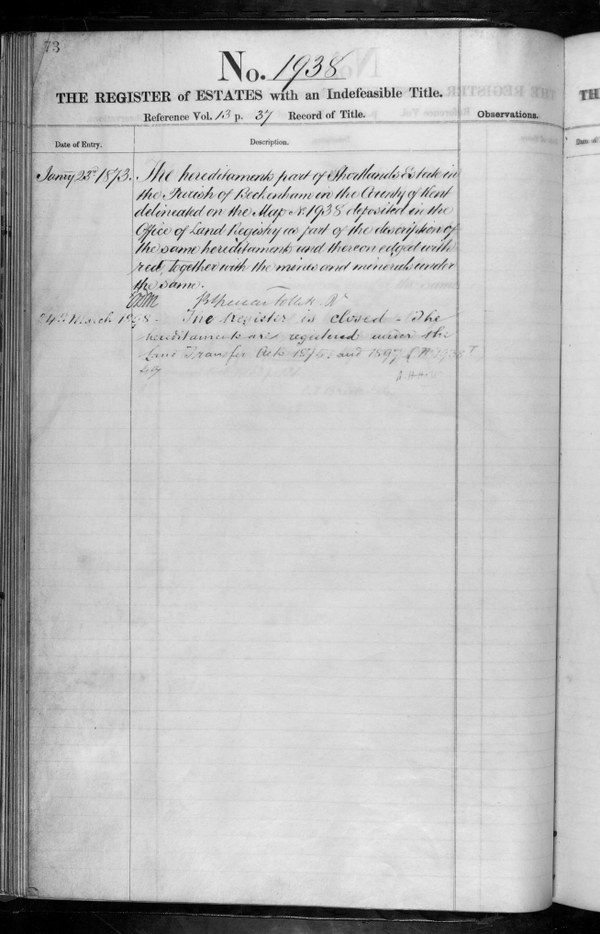 73
No. 1938
THE REGISTER of ESTATES with an Indefeasible Title.
Reference Vol. 13 p. 37 Record of Title.
Observations.
Date of Entry.
Description.
Janry 23rd 1873. The hereditaments part of Shortlands Estate in
the Parish of Beckenham in the County of Kent
delineated on the Map No. 1938 deposited in the
Office of Land Registry as part of the description of
the same hereditaments and thereon edged with
red, together with the mines and minerals under
the same.
24th March The Register is closed - The
hereditaments are registered under the
Land Transfer Acts 1875 and 1897
THE